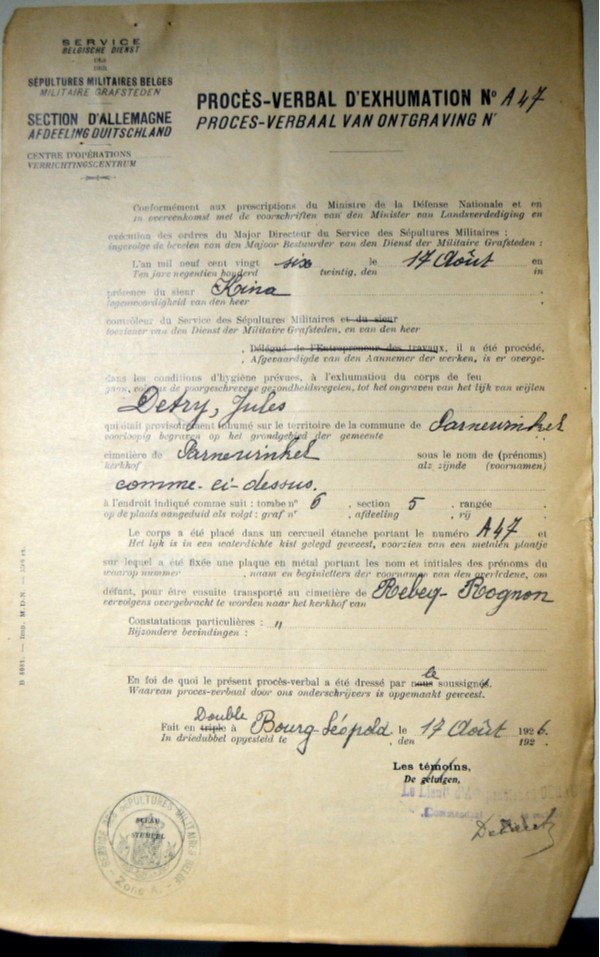 SERVICE
BELGISCHE DIENST
DES
DER
SÉPULTURES MILITAIRES BELGES
MILITAIRE GRAFSTEDEN
SECTION D'ALLEMAGNE
AFDEELING DUITSCHLAND
CENTRE D'OPÉRATIONS
VERRICHTINGSCENTRUM
PROCÈS-VERBAL D'EXHUMATION N° A 47
PROCES-VERBAAL VAN ONTGRAVING Nr
Conformément aux prescriptions du Ministre de la Défense Nationale et en
In overeenkomst met de voorschriften van den Minister van Landsverdediging en
exécution des ordres du Major Directeur du Service des Sépultures Militaires :
ingevolge de bevelen van den Majoor Bestuurder van den Dienst der Militaire Grafsteden :
L'an mil neuf cent vingt six le 17 Août en
Ten jare negentien honderd twintig, den in
présence du sieur Kina
tegenwoordigheid van den heer
contrôleur du Service des Sépultures Militaires et du sieur
toeziener van den Dienst der Militaire Grafsteden, en van den heer
, Délégué de l'Entrepreneur des travaux, il a été procédé,
, Afgevaardigde van den Aannemer der werken, is er overge-
dans les conditions d'hygiène prévues, à l'exhumation du corps de feu
gaan, volgens de voorgeschreven gezondheidsregelen, tot het ongraven van het lijk van wijlen
Detry, Jules
qui était provisoirement inhumé sur le territoire de la commune de Sarnewinkel
voorloopig begraven op het grondgebied der gemeente
cimetière de Sarnewinkel sous le nom de (prénoms)
kerkhof als zijnde (voornamen)
comme ci-dessus.
à l'endroit indiqué comme suit : tombe n° 6 , section 5 , rangée
op de plaats aangeduid als volgt : graf nr , afdeeling , rij
Le corps a été placé dans un cercueil étanche portant le numéro A47 et
Het lijk is in een waterdichte kist gelegd geweest, voorzien van een metalen plaatje
sur lequel a été fixée une plaque en métal portant les nom et initiales des prénoms du
waarop nummer , naam en beginletters der voornamen van den overledene, om
défunt, pour être ensuite transporté au cimetière de Rebecq-Rognon
vervolgens overgebracht te worden naar het kerkhof van
Constatations particulières : "
Bijzondere bevindingen :
En foi de quoi le présent procès-verbal a été dressé par nous le soussigné.
Waarvan proces-verbaal door ons onderschrijvers is opgemaakt geweest.
Double
Fait en triple à Bourg-Léopold le 17 Août 1926.
In driedubbel opgesteld te , den 192 .
Les témoins,
De getuigen,
Commandant
SERVICE DES SÉPULTURES MILITAIRES BELGES
SCEAU
STEMPEL
Zone A.